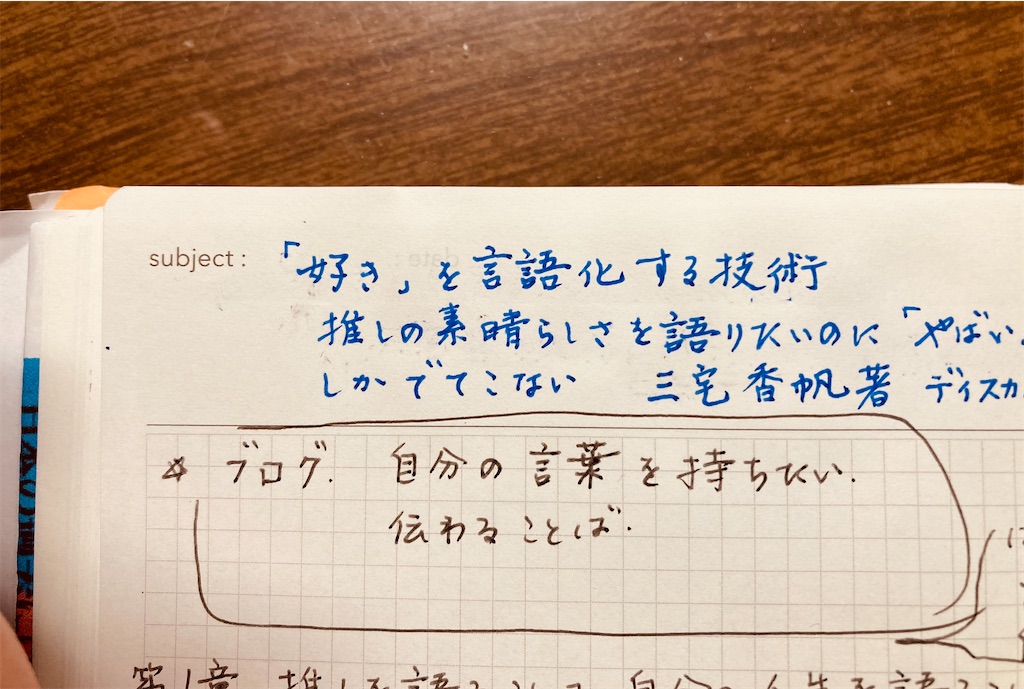 subject : 「好き」を言語化する技術
推しの素晴らしさを語りたいのに「やばい」
しかでてこない 三宅香帆著 ディスカ
☆ ブログ. 自分の言葉を持ちたい.
伝わることば.
第1章 推しを語ること